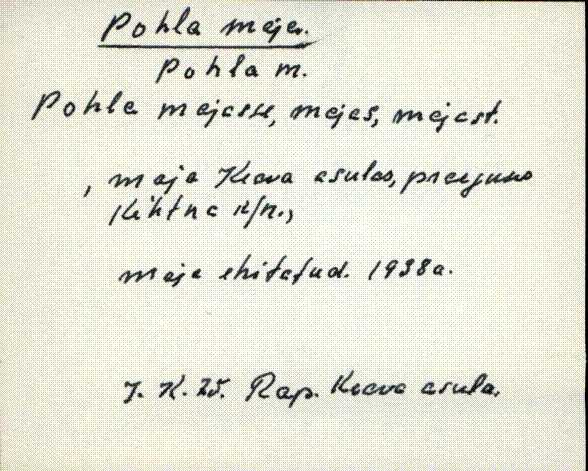 Pohla maja.
Pohla m.
Pohla majasse, majas, majast.
, maja Keava asulas, praeguse
Kehtna k/n.,
maja ehitatud. 1938a.
J. K. 25. Rap. Keava asula.